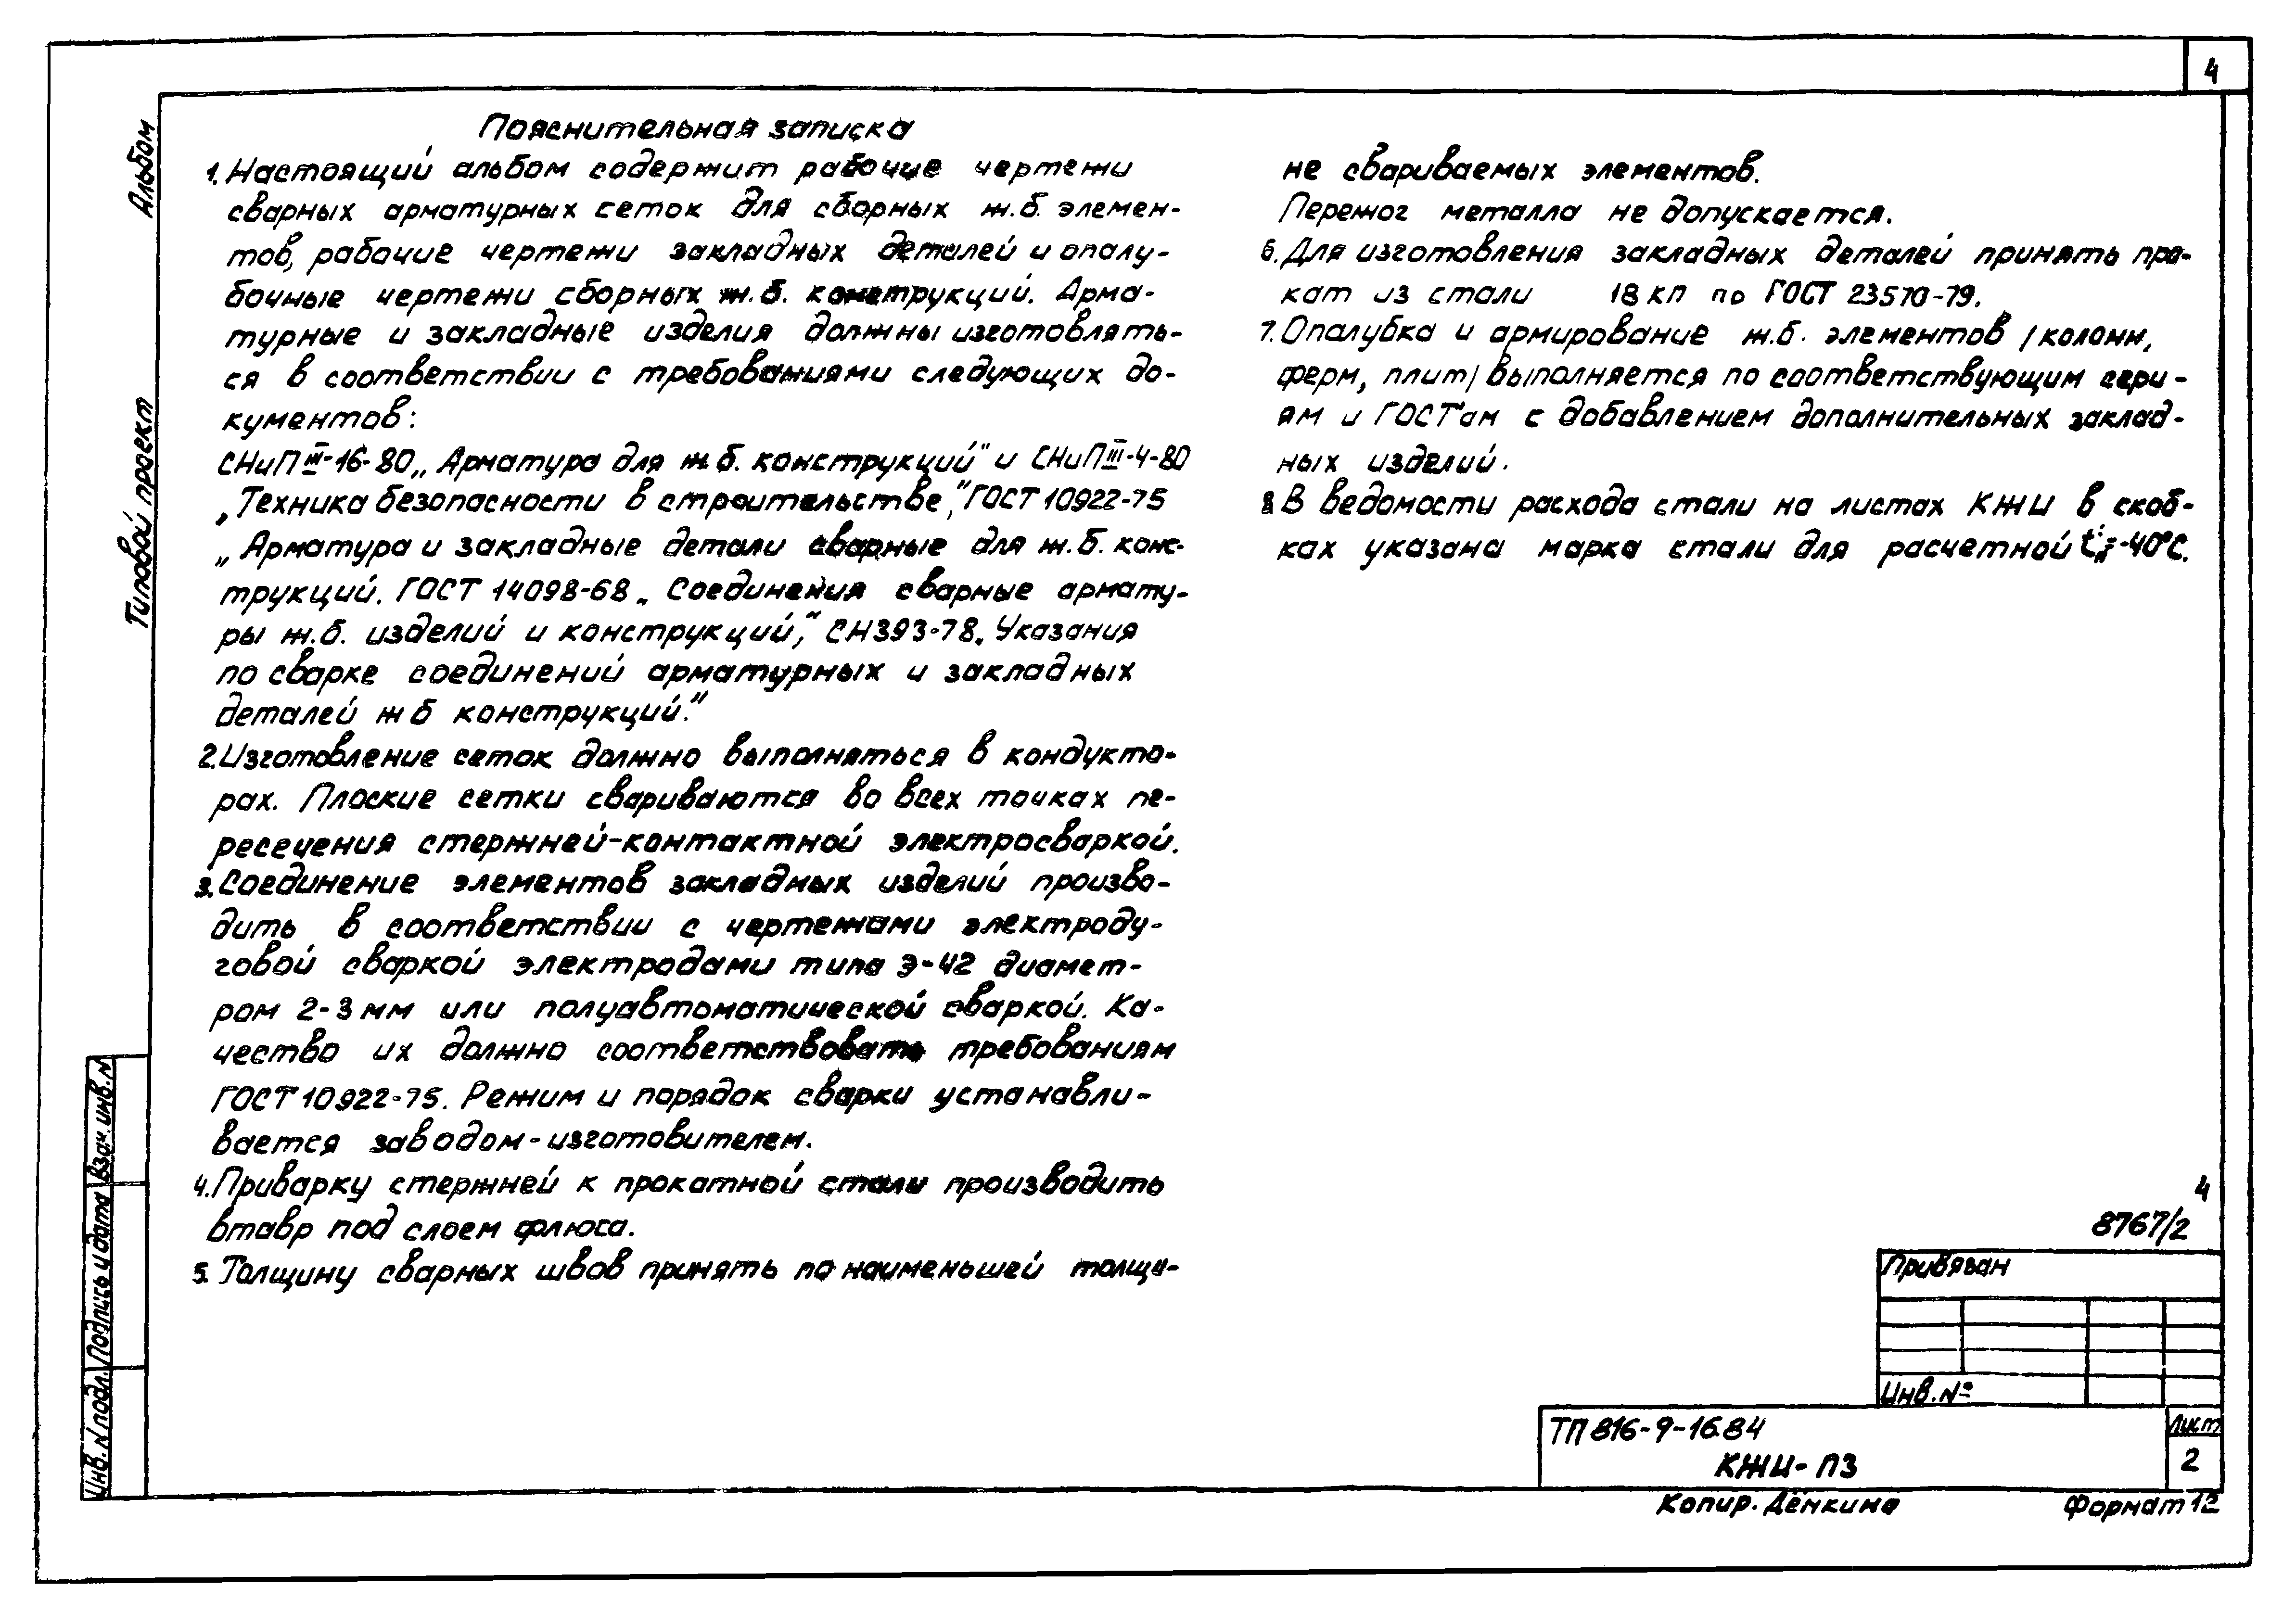 4
Альбом
Типовой проект
Пояснительная записка
1. Настоящий альбом содержит рабочие чертежи
сварных арматурных сеток для сборных ж.б. элемен-
тов, рабочие чертежи закладных деталей и опалу-
бочные чертежи сборных ж.б. конструкций. Арма-
турные и закладные изделия должны изготовлять-
ся в соответствии с требованиями следующих до-
кументов:
СНиП III-16-80 „Арматура для ж.б. конструкций" и СНиП III-4-80
„Техника безопасности в строительстве," ГОСТ 10922-75
„Арматура и закладные детали сварные для ж.б. конс-
трукций. ГОСТ 14098-68 „Соединения сварные армату-
ры ж.б. изделий и конструкций," СН393-78 „Указания
по сварке соединений арматурных и закладных
деталей ж б конструкций."
2. Изготовление сеток должно выполняться в кондукто-
рах. Плоские сетки свариваются во всех точках пе-
ресечения стержней-контактной электросваркой.
3. Соединение элементов закладных изделий произво-
дить в соответствии с чертежами электроду-
говой сваркой электродами типа Э-42 диамет-
ром 2-3 мм или полуавтоматической сваркой. Ка-
чество их должно соответствовать требованиям
ГОСТ 10922-75. Режим и порядок сварки устанавли-
вается заводом-изготовителем.
4. Приварку стержней к прокатной стали производить
втавр под слоем флюса.
5. Толщину сварных швов принять по наименьшей толщи-
не свариваемых элементов.
Пережог металла не допускается.
6. Для изготовления закладных деталей принять про-
кат из стали 18 кп по ГОСТ 23570-79.
7. Опалубка и армирование ж.б. элементов /колонн,
ферм, плит/ выполняется по соответствующим сери-
ям и ГОСТ'ам с добавлением дополнительных заклад-
ных изделий.
8 В ведомости расхода стали на листах КЖИ в скоб-
ках указана марка стали для расчетной t°н=-40°С.
4
8767/2
Привязан
Инв. №
ТП 816-9-16.84
КЖИ-ПЗ
Лист
2
Копир. Дёнкина
Формат 12
Взам. инв. N
Подпись и дата
Инв. N подл.